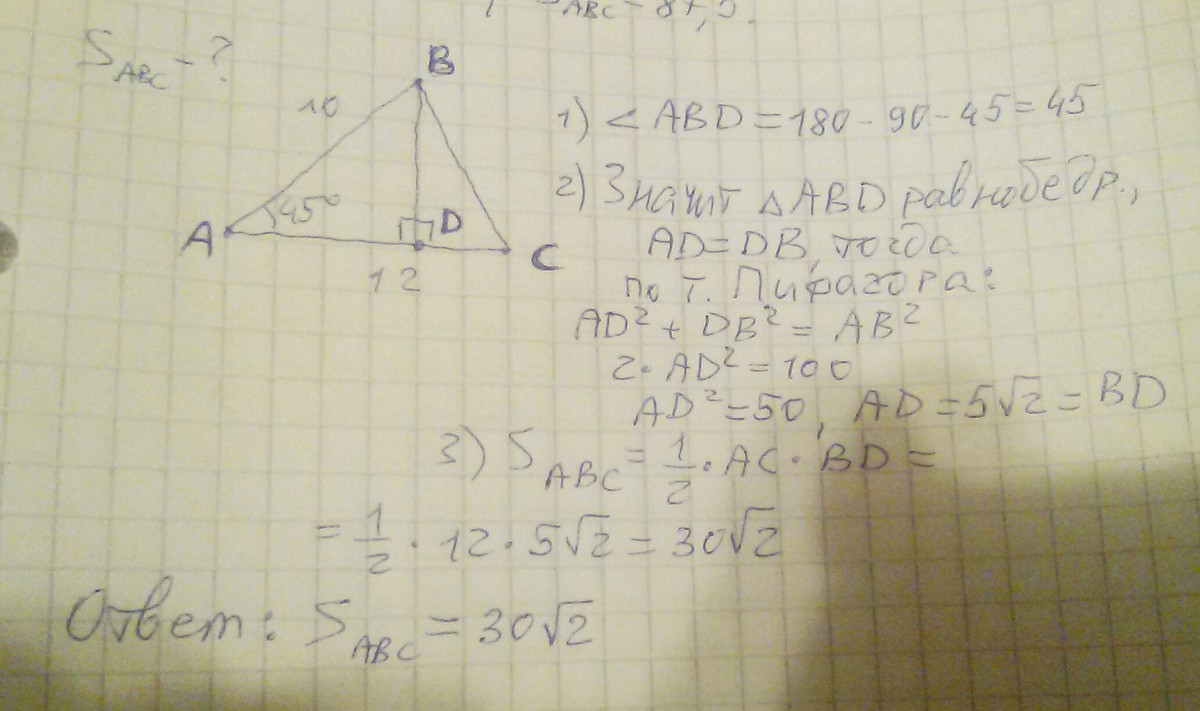 S_ABC = 87,5.
S_ABC - ?
B
10
45°
A
D
C
12
1) ∠ ABD = 180 - 90 - 45 = 45
2) Значит △ABD равнобедр.,
AD = DB, тогда
по т. Пифагора:
AD² + DB² = AB²
2 · AD² = 100
AD² = 50, AD = 5√2 = BD
3) S_ABC = 1/2 · AC · BD =
= 1/2 · 12 · 5√2 = 30√2
Ответ: S_ABC = 30√2